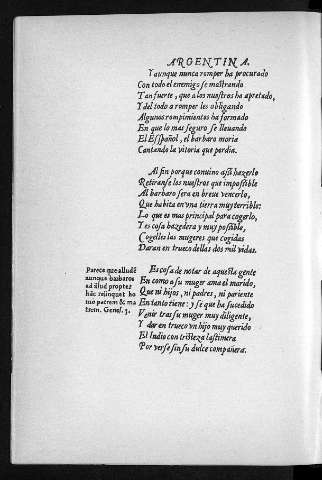 ARGENTINA.
Y aunque nunca romper ha procurado
Con todo el enemigo se mostrando
Tan fuerte, que a los nuestros ha apretado,
Y del todo a romper les obligando
Algunos rompimientos ha formado
En que lo mas seguro se lleuando
El Español, el barbaro moria
Cantando la vitoria que perdia.
Al fin porque conuino assi hazerlo
Retiranse los nuestros que impossible
Al barbaro sera en breue vencerlo,
Que habita en vna tierra muy terrible:
Lo que es mas principal para cogerlo,
Y es cosa hazedera y muy posible,
Cogelles las mugeres que cogidas
Daran en trueco dellas dos mil vidas.
Parece que alludẽ
aunque barbaros
ad illud propter
hũc relinquet ho
mo patrem & ma
trem. Genes. 3.
Es cosa de notar de aquesta gente
En como a su muger ama el marido,
Que ni hijos, ni padres, ni pariente
En tanto tiene: y se que ha sucedido
Venir tras su muger muy diligente,
Y dar en trueco vn hijo muy querido
El Indio con tristeza lastimera
Por verse sin su dulce compañera.